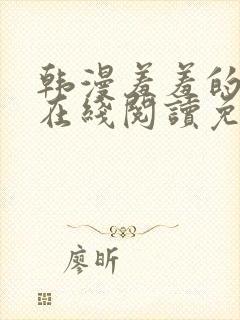 韩漫羞羞的
在线阅读免
廖昕